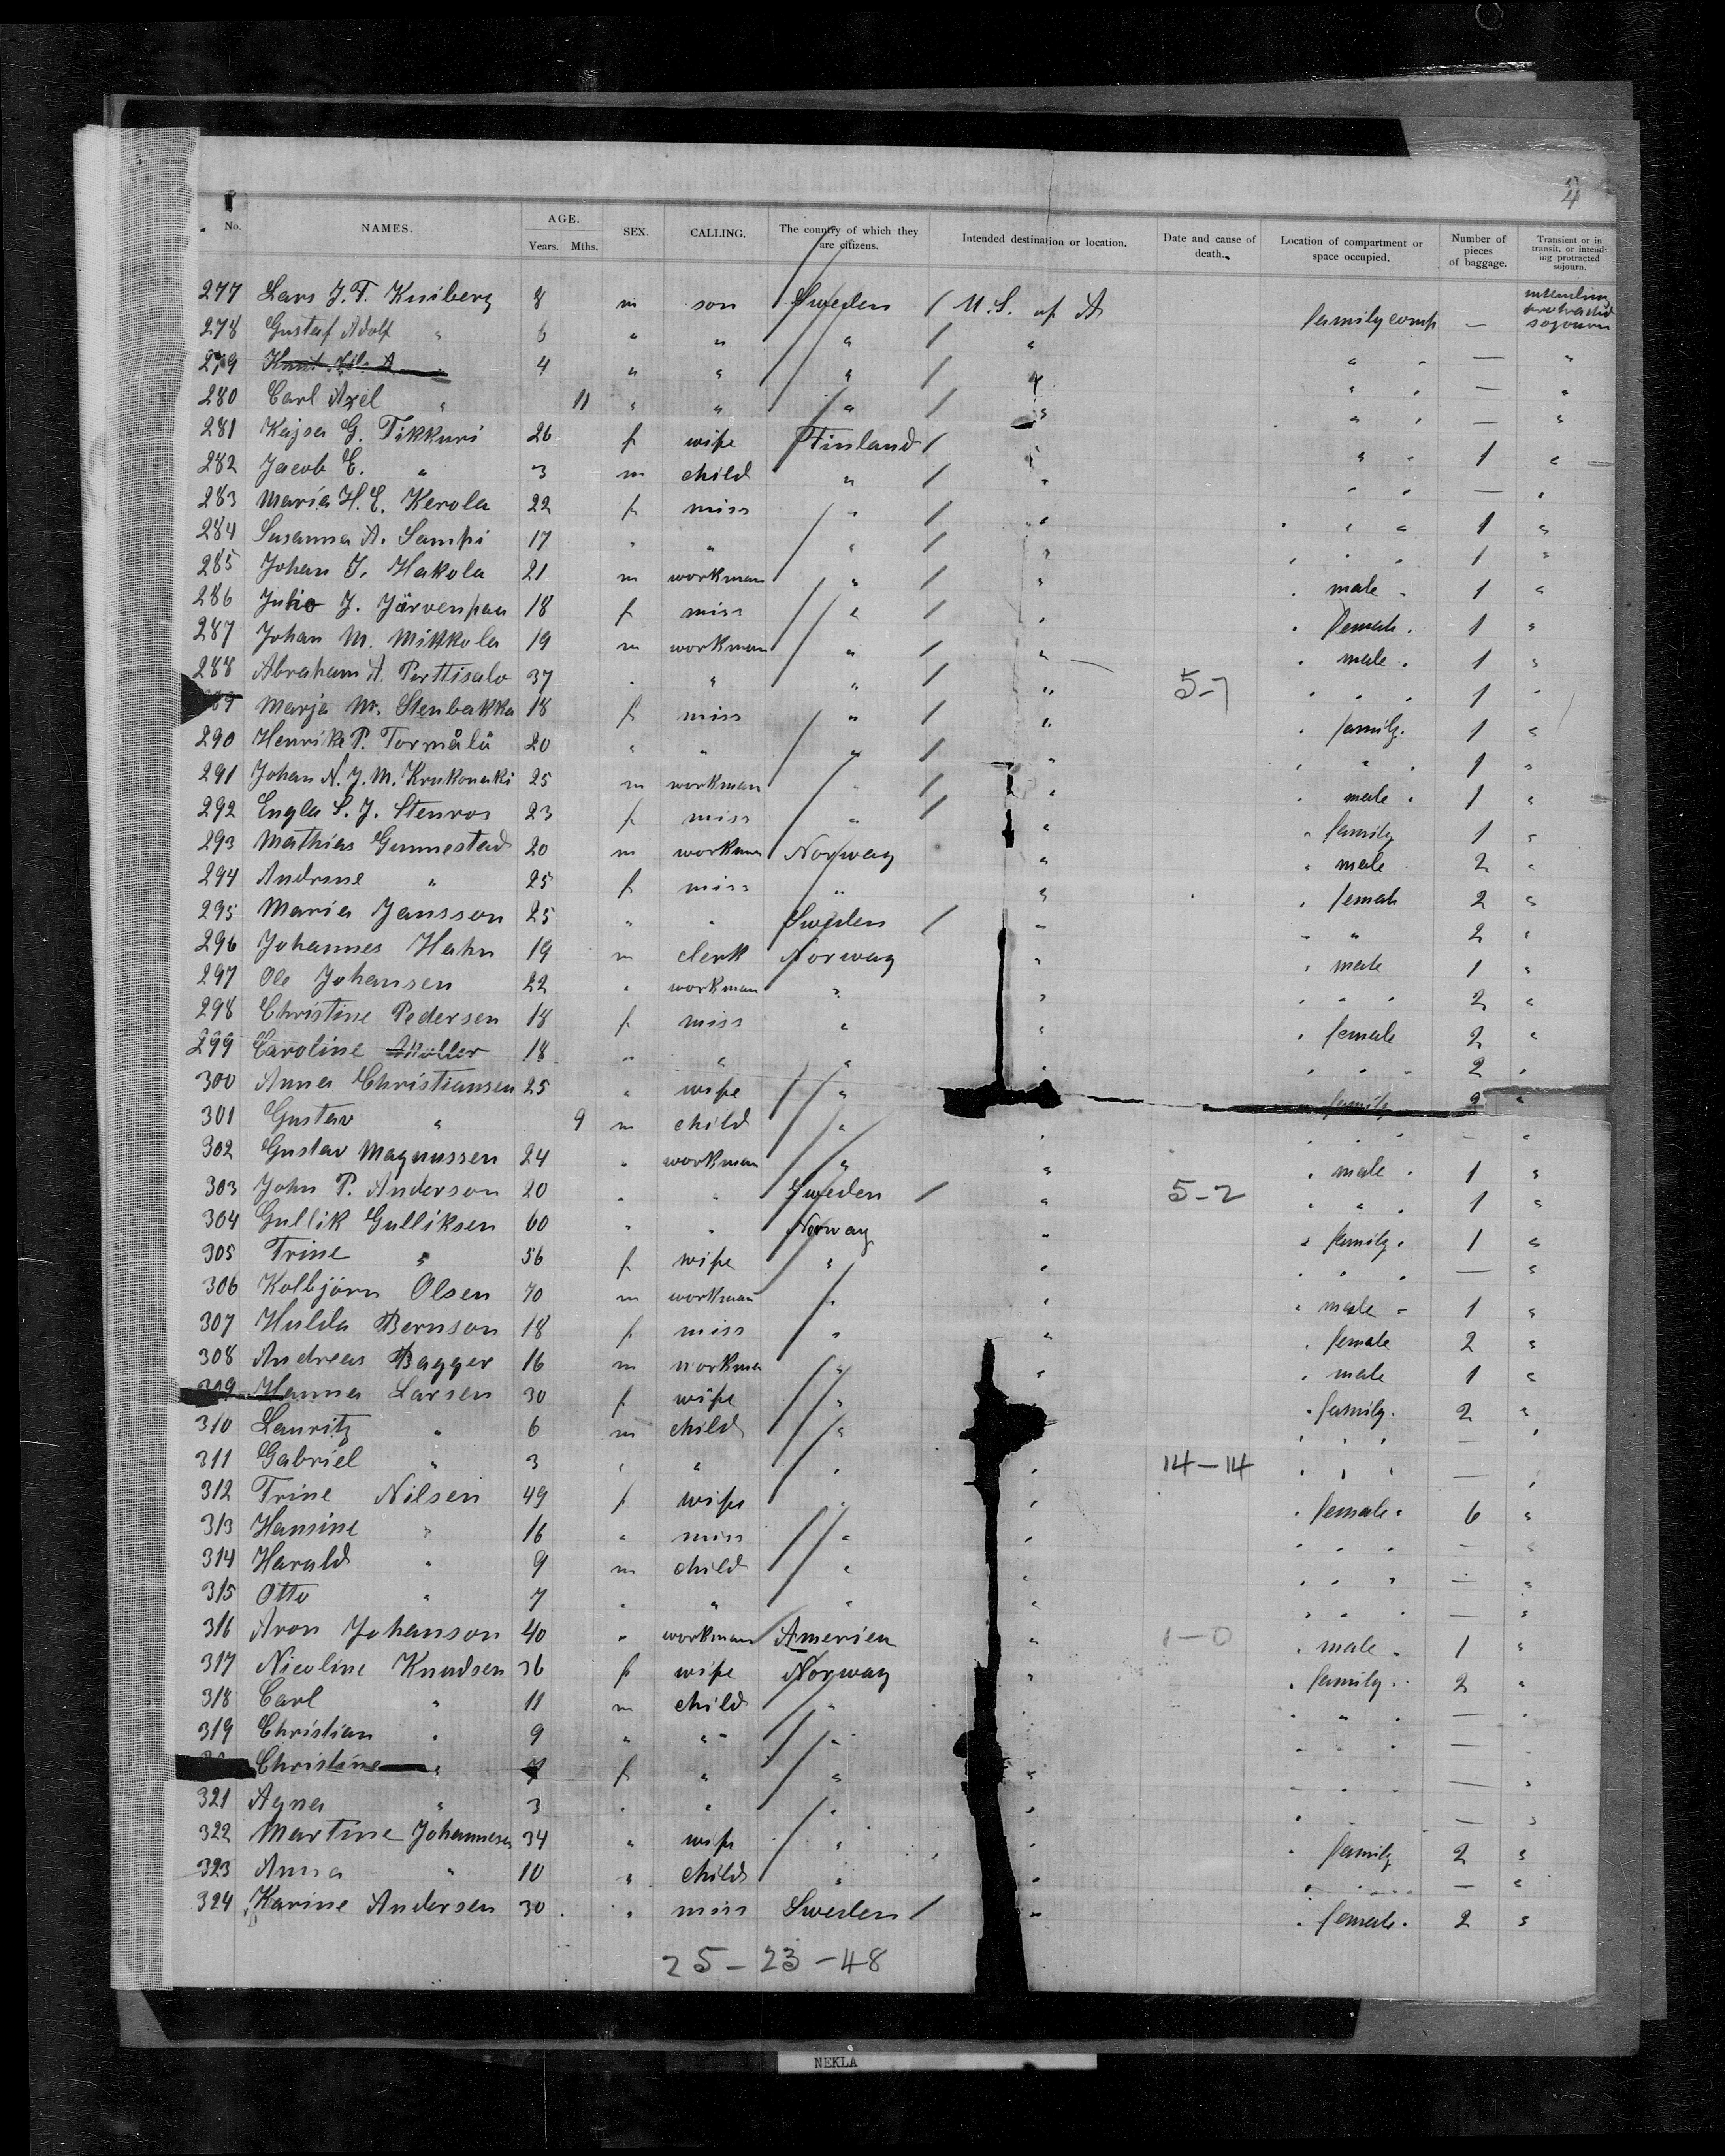 4
No. NAMES. AGE. Years. Mths. SEX. CALLING. The country of which they are citizens. Intended destination or location. Date and cause of death. Location of compartment or space occupied. Number of pieces of baggage. Transient or in transit, or intending protracted sojourn.
277 Lars J. T. Kniberg 8 m son Sweden / U. S. of A family comp — intending protracted sojourn
278 Gustaf Adolf " 6 " " " / " "
279 4 " " " / " " " — "
280 Carl Axel " 11 " " " / " " " — "
281 Kajsa G. Tikkuri 26 f wife Finland / " " " 1 "
282 Jacob E. " 3 m child " / " " " — "
283 Maria H. E. Kerola 22 f miss " / " " " " 1 "
284 Susanna A. Sampi 17 " " " / " " " " 1 "
285 Johan J. Hakola 21 m workman " / " " male " 1 "
286 Julio J. Järvenpaa 18 f miss " / " " female " 1 "
287 Johan M. Mikkola 19 m workman " / " " male " 1 "
288 Abraham A. Perttisalo 37 " " " / " 5-7 " " " 1 "
289 Marja M. Stenbakka 18 f miss " / " " family " 1 "
290 Henrik P. Tormålä 20 " " " / " " " " 1 "
291 Johan N. J. M. Krukonaki 25 m workman " / " " male " 1 "
292 Engla S. J. Stenros 23 f miss " / " " family 1 "
293 Mathias Gunnestad 20 m workman Norway " " male 2 "
294 Andrine " 25 f miss " " " female 2 "
295 Maria Jansson 25 " " Sweden / " " " 2 "
296 Johannes Hahn 19 m clerk Norway " " male 1 "
297 Ole Johansen 22 " workman " " " " " 2 "
298 Christine Pedersen 18 f miss " " " female 2 "
299 Caroline Müller 18 " " " " " " " 2 "
300 Anna Christiansen 25 " wife " family 2 "
301 Gustav " 9 m child " " " " " — "
302 Gustav Magnussen 24 " workman " " " male " 1 "
303 John P. Anderson 20 " " Sweden / " 5-2 " " " 1 "
304 Gullik Gulliksen 60 " " Norway " " family " 1 "
305 Trine " 56 f wife " " " " " — "
306 Kolbjörn Olsen 70 m workman " " " male " 1 "
307 Hulda Bernson 18 f miss " " " female 2 "
308 Andreas Bagger 16 m workma " " " male 1 "
309 Hanna Larsen 30 f wife " " family " 2 "
310 Lauritz " 6 m child " " " " — "
311 Gabriel " 3 " " " " 14-14 " " " — "
312 Trine Nilsen 49 f wife " " " female " 6 "
313 Hansine " 16 " miss " " " " — "
314 Harald " 9 m child " " " " " — "
315 Otto " 7 " " " " " " " — "
316 Aron Johanson 40 " workman America " 1-0 " male " 1 "
317 Nicoline Knudsen 36 f wife Norway " " family " 2 "
318 Carl " 11 m child " " " " " — "
319 Christian " 9 " " " " " " — "
Christine " 7 f " " " " " " — "
321 Agna " 3 " " " " " — "
322 Martine Johannesen 34 " wife " " " family 2 "
323 Anna " 10 " child " " " — "
324 Karine Andersen 30 " miss Sweden / " " female " 2 "
25-23-48
NEKLA